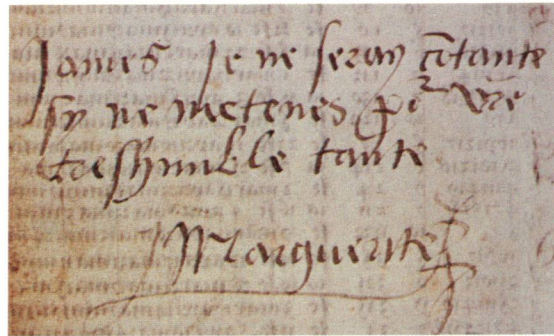 James Je ne seray cõtante
sy ne me tenes po^r vre
tres humble tante
Marguerite